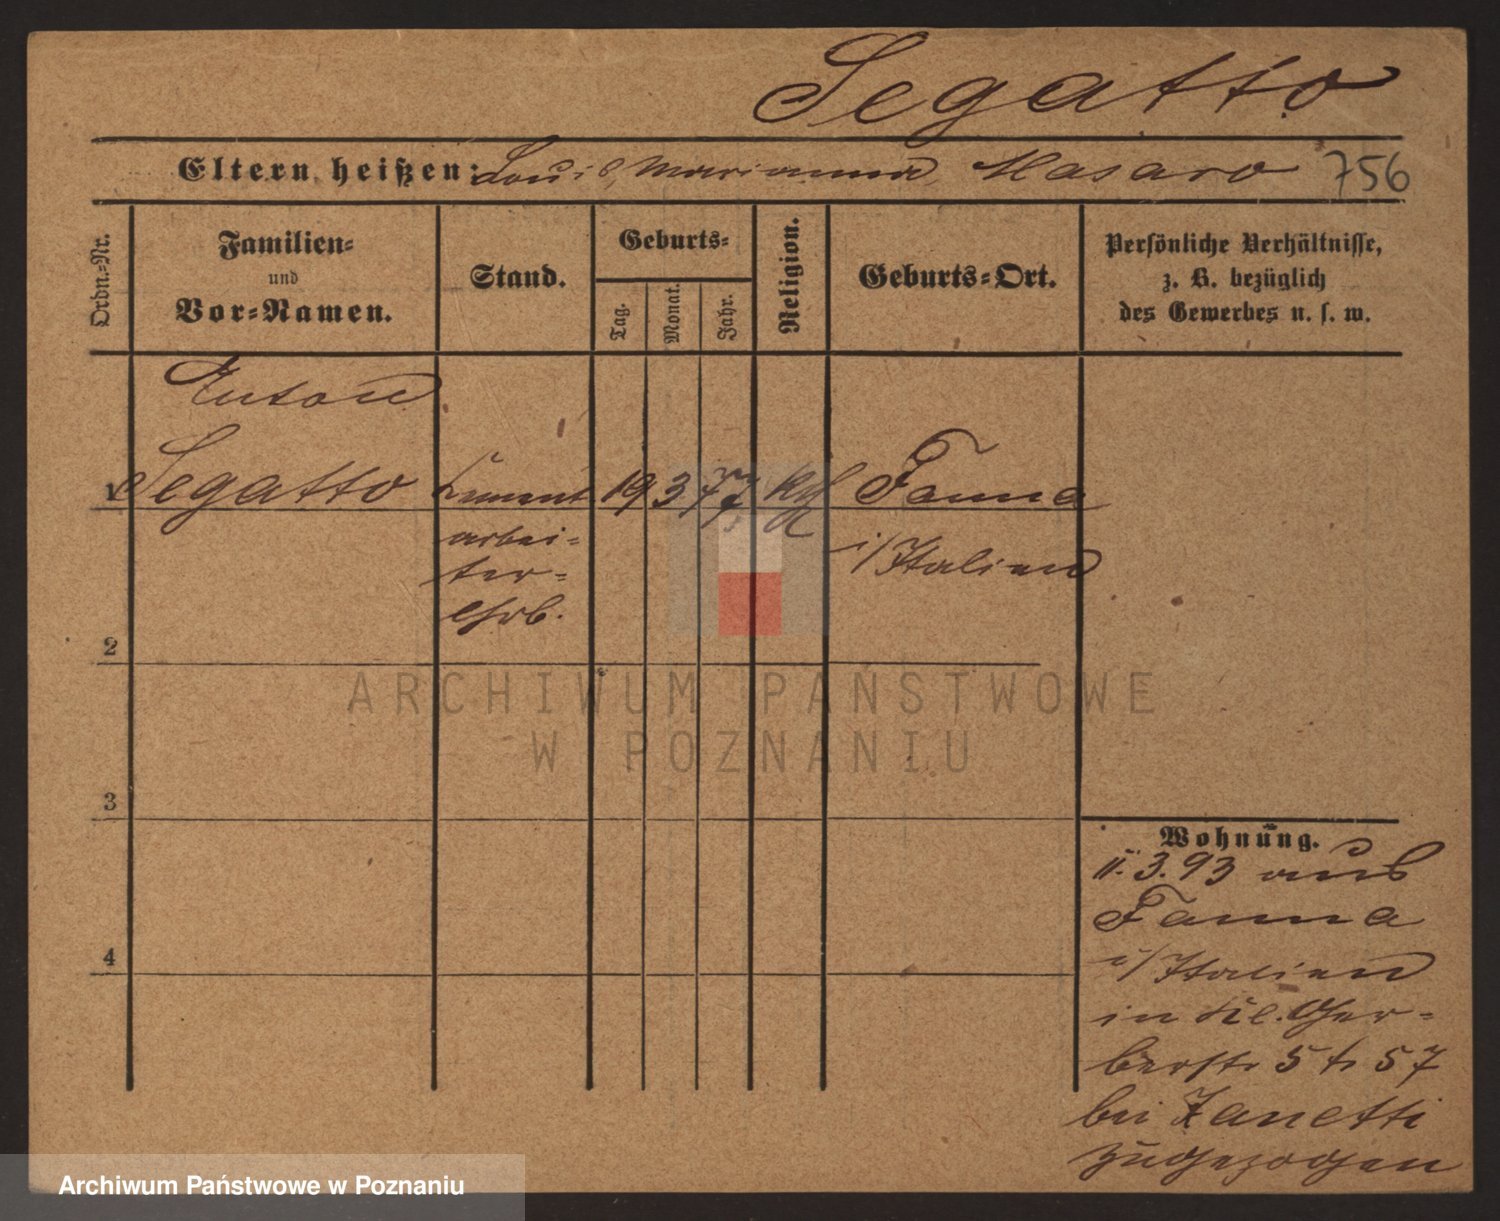 Segatto
Eltern heißen: Louis, Marianna, Masaro 756
Ordn.=Nr.
Familien=
und
Vor=Namen.
Stand.
Geburts=
Tag.
Monat.
Jahr.
Religion.
Geburts=Ort.
Persönliche Verhältnisse,
z. B. bezüglich
des Gewerbes u. s. w.
Anton
1 Segatto Cement 19 3 77 kth Fanna
arbei=
ter=
i/Italien
2
3
4
Wohnung.
11.3.93 aus
Fanna
i/Italien
in Kl. Ger=
berstr 5 t. 57
bei Zanetti
zugezogen
ARCHIWUM PAŃSTWOWE
W POZNANIU
Archiwum Państwowe w Poznaniu